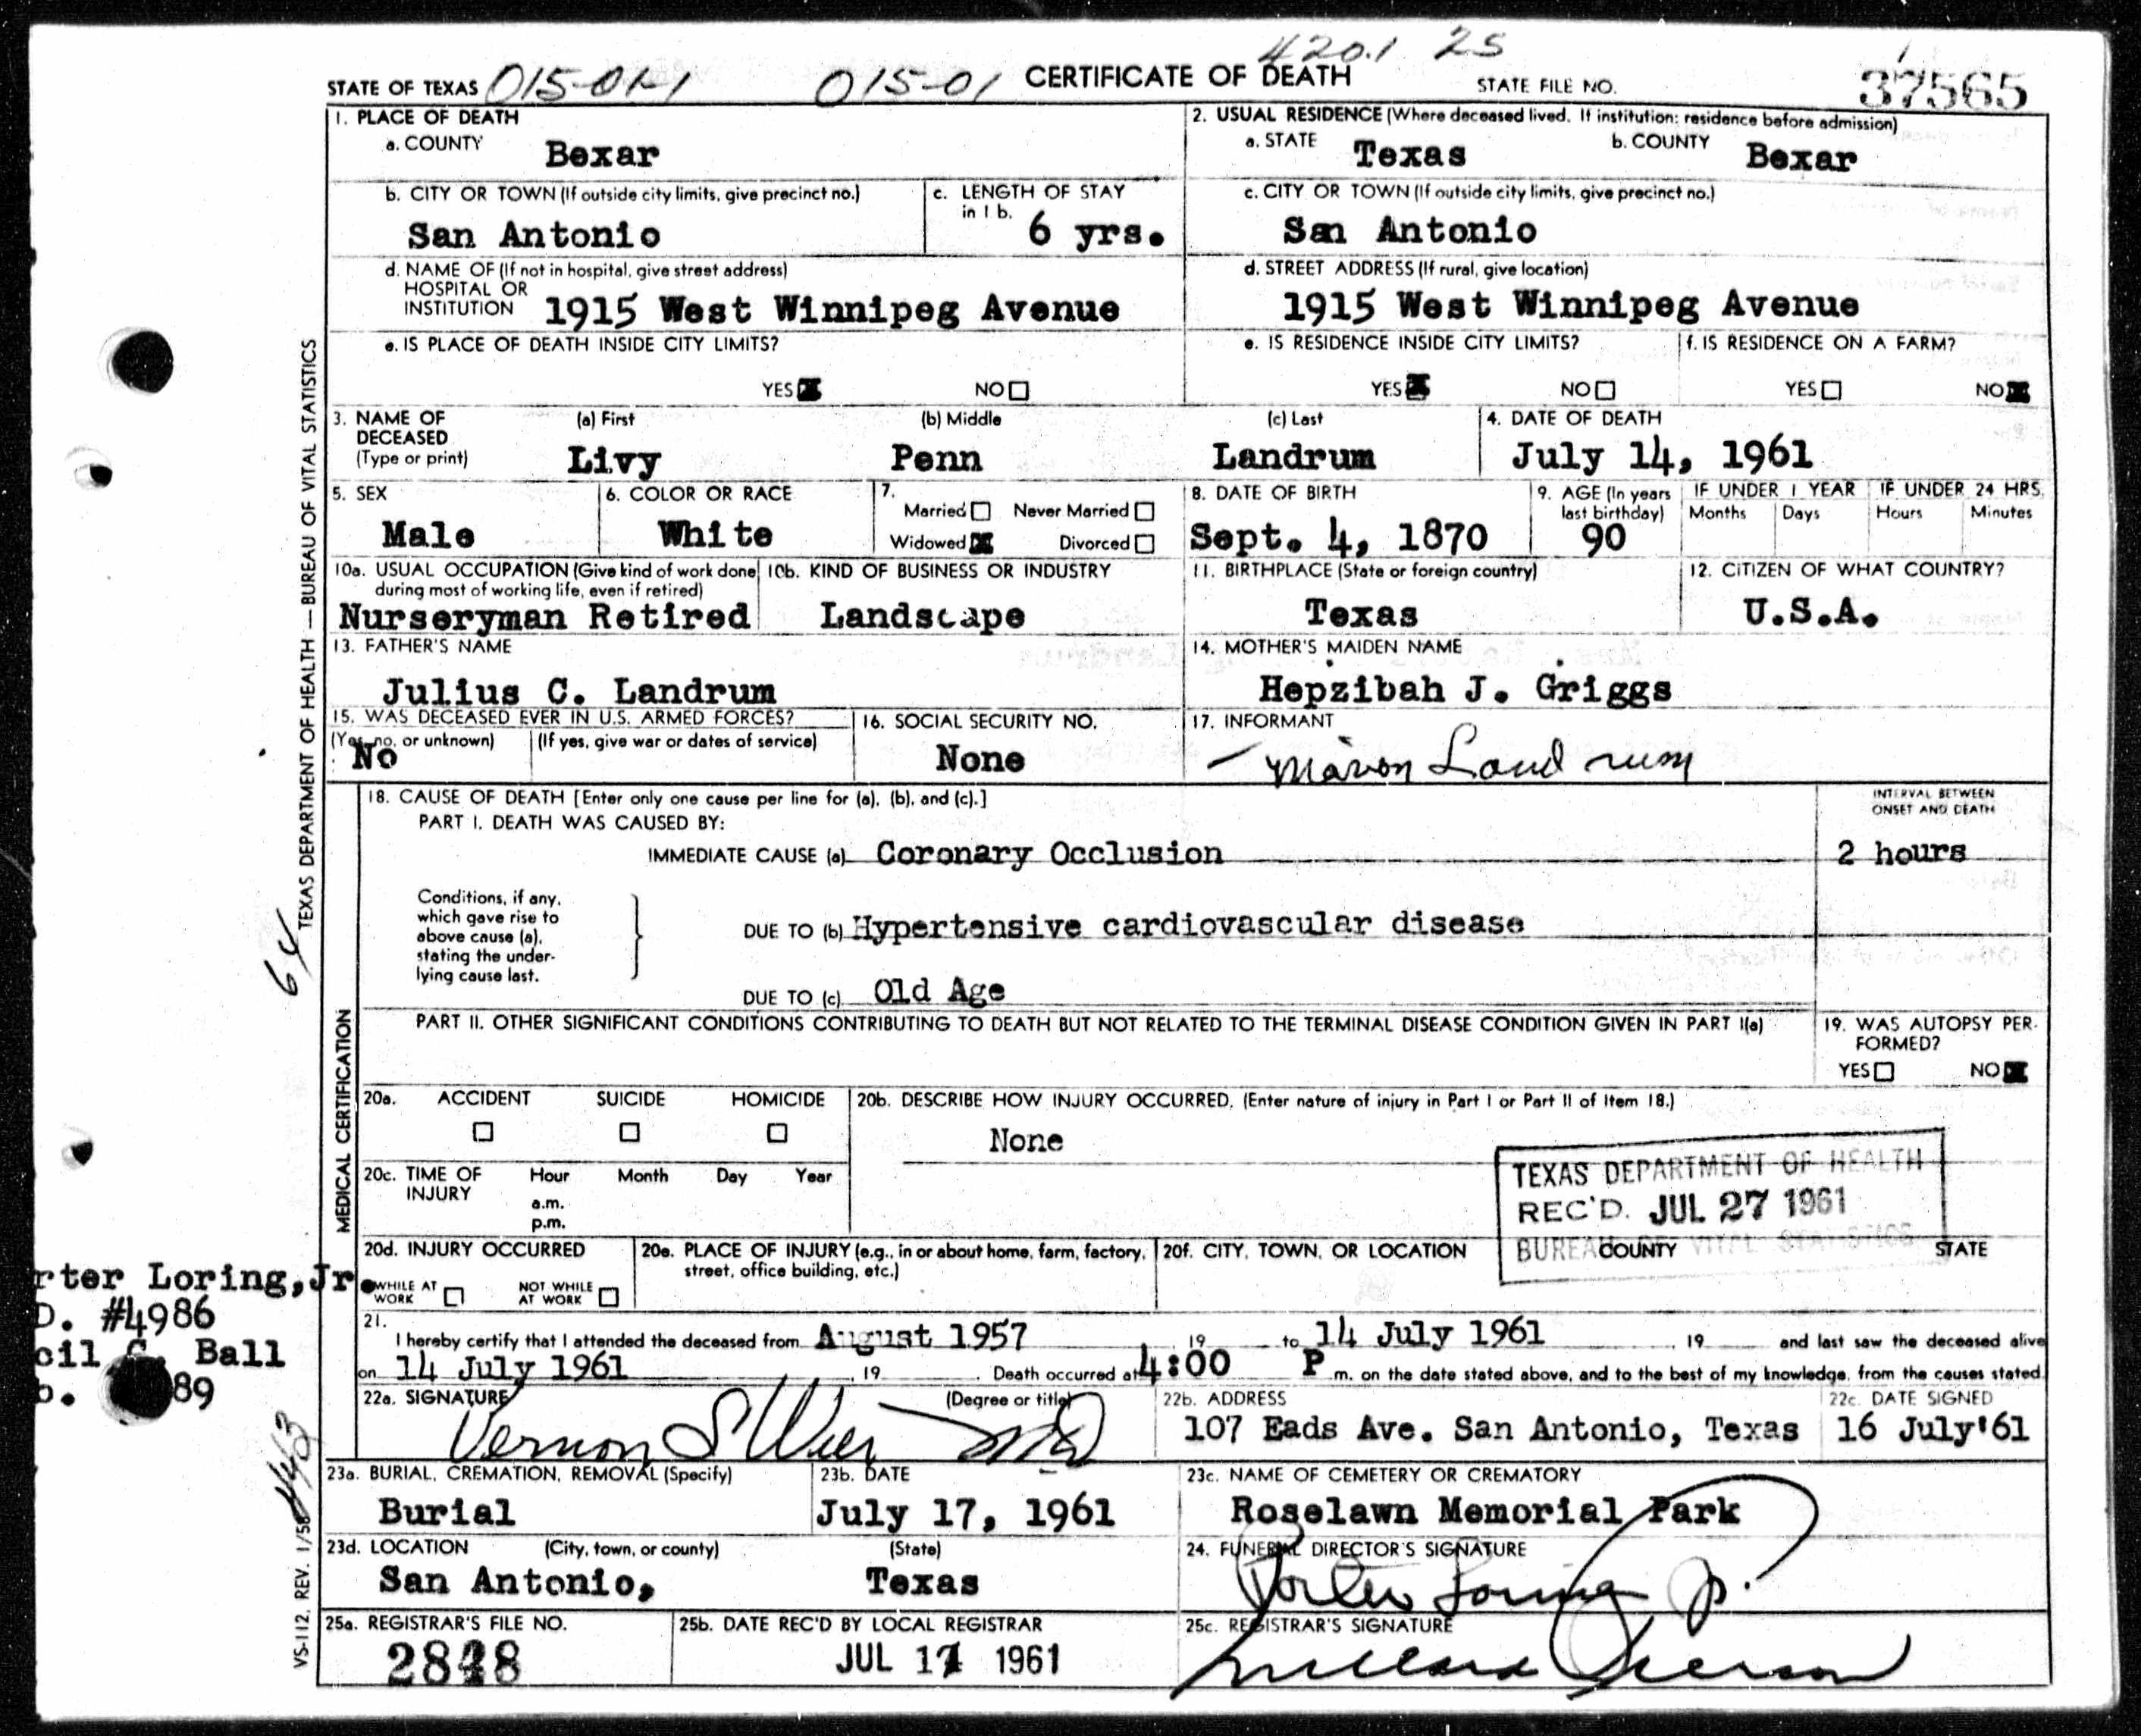 420.1 25
STATE OF TEXAS 015-01-1 015-01 CERTIFICATE OF DEATH STATE FILE NO. 37565
1. PLACE OF DEATH
a. COUNTY Bexar
2. USUAL RESIDENCE (Where deceased lived. If institution: residence before admission)
a. STATE Texas b. COUNTY Bexar
b. CITY OR TOWN (If outside city limits, give precinct no.)
San Antonio
c. LENGTH OF STAY
in 1 b. 6 yrs.
c. CITY OR TOWN (If outside city limits, give precinct no.)
San Antonio
d. NAME OF (If not in hospital, give street address)
HOSPITAL OR
INSTITUTION 1915 West Winnipeg Avenue
d. STREET ADDRESS (If rural, give location)
1915 West Winnipeg Avenue
e. IS PLACE OF DEATH INSIDE CITY LIMITS?
YES NO
e. IS RESIDENCE INSIDE CITY LIMITS?
YES NO
f. IS RESIDENCE ON A FARM?
YES NO
3. NAME OF
DECEASED
(Type or print)
(a) First (b) Middle (c) Last
Livy Penn Landrum
4. DATE OF DEATH
July 14, 1961
5. SEX
Male
6. COLOR OR RACE
White
7.
Married Never Married
Widowed Divorced
8. DATE OF BIRTH
Sept. 4, 1870
9. AGE (In years
last birthday)
90
IF UNDER 1 YEAR
Months Days
IF UNDER 24 HRS.
Hours Minutes
10a. USUAL OCCUPATION (Give kind of work done
during most of working life, even if retired)
Nurseryman Retired
10b. KIND OF BUSINESS OR INDUSTRY
Landscape
11. BIRTHPLACE (State or foreign country)
Texas
12. CITIZEN OF WHAT COUNTRY?
U.S.A.
13. FATHER'S NAME
Julius C. Landrum
14. MOTHER'S MAIDEN NAME
Hepzibah J. Griggs
15. WAS DECEASED EVER IN U.S. ARMED FORCES?
(Yes, no, or unknown) (If yes, give war or dates of service)
No
16. SOCIAL SECURITY NO.
None
17. INFORMANT
Marion Landrum
18. CAUSE OF DEATH [Enter only one cause per line for (a), (b), and (c).]
PART I. DEATH WAS CAUSED BY:
INTERVAL BETWEEN
ONSET AND DEATH
IMMEDIATE CAUSE (a) Coronary Occlusion 2 hours
Conditions, if any,
which gave rise to
above cause (a),
stating the under-
lying cause last.
DUE TO (b) Hypertensive cardiovascular disease
DUE TO (c) Old Age
PART II. OTHER SIGNIFICANT CONDITIONS CONTRIBUTING TO DEATH BUT NOT RELATED TO THE TERMINAL DISEASE CONDITION GIVEN IN PART I(a)
19. WAS AUTOPSY PER-
FORMED?
YES NO
20a. ACCIDENT SUICIDE HOMICIDE
20b. DESCRIBE HOW INJURY OCCURRED. (Enter nature of injury in Part I or Part II of Item 18.)
None
20c. TIME OF
INJURY
Hour Month Day Year
a.m.
p.m.
TEXAS DEPARTMENT OF HEALTH
REC'D. JUL 27 1961
BUREAU OF VITAL STATISTICS
20d. INJURY OCCURRED
WHILE AT
WORK
NOT WHILE
AT WORK
20e. PLACE OF INJURY (e.g., in or about home, farm, factory,
street, office building, etc.)
20f. CITY, TOWN, OR LOCATION COUNTY STATE
21.
I hereby certify that I attended the deceased from August 1957, 19 to 14 July 1961, 19 and last saw the deceased alive
on 14 July 1961, 19. Death occurred at 4:00 P m. on the date stated above, and to the best of my knowledge, from the causes stated.
22a. SIGNATURE (Degree or title)
Vernon S Wier MD
22b. ADDRESS
107 Eads Ave. San Antonio, Texas
22c. DATE SIGNED
16 July'61
23a. BURIAL, CREMATION, REMOVAL (Specify)
Burial
23b. DATE
July 17, 1961
23c. NAME OF CEMETERY OR CREMATORY
Roselawn Memorial Park
23d. LOCATION (City, town, or county) (State)
San Antonio, Texas
24. FUNERAL DIRECTOR'S SIGNATURE
Porter Loring Jr.
25a. REGISTRAR'S FILE NO.
25b. DATE REC'D BY LOCAL REGISTRAR
JUL 1961
25c. REGISTRAR'S SIGNATURE
TEXAS DEPARTMENT OF HEALTH — BUREAU OF VITAL STATISTICS
64
MEDICAL CERTIFICATION
rter Loring, Jr
D. #4986
cil C. Ball
89
VS-112, REV. 1/58